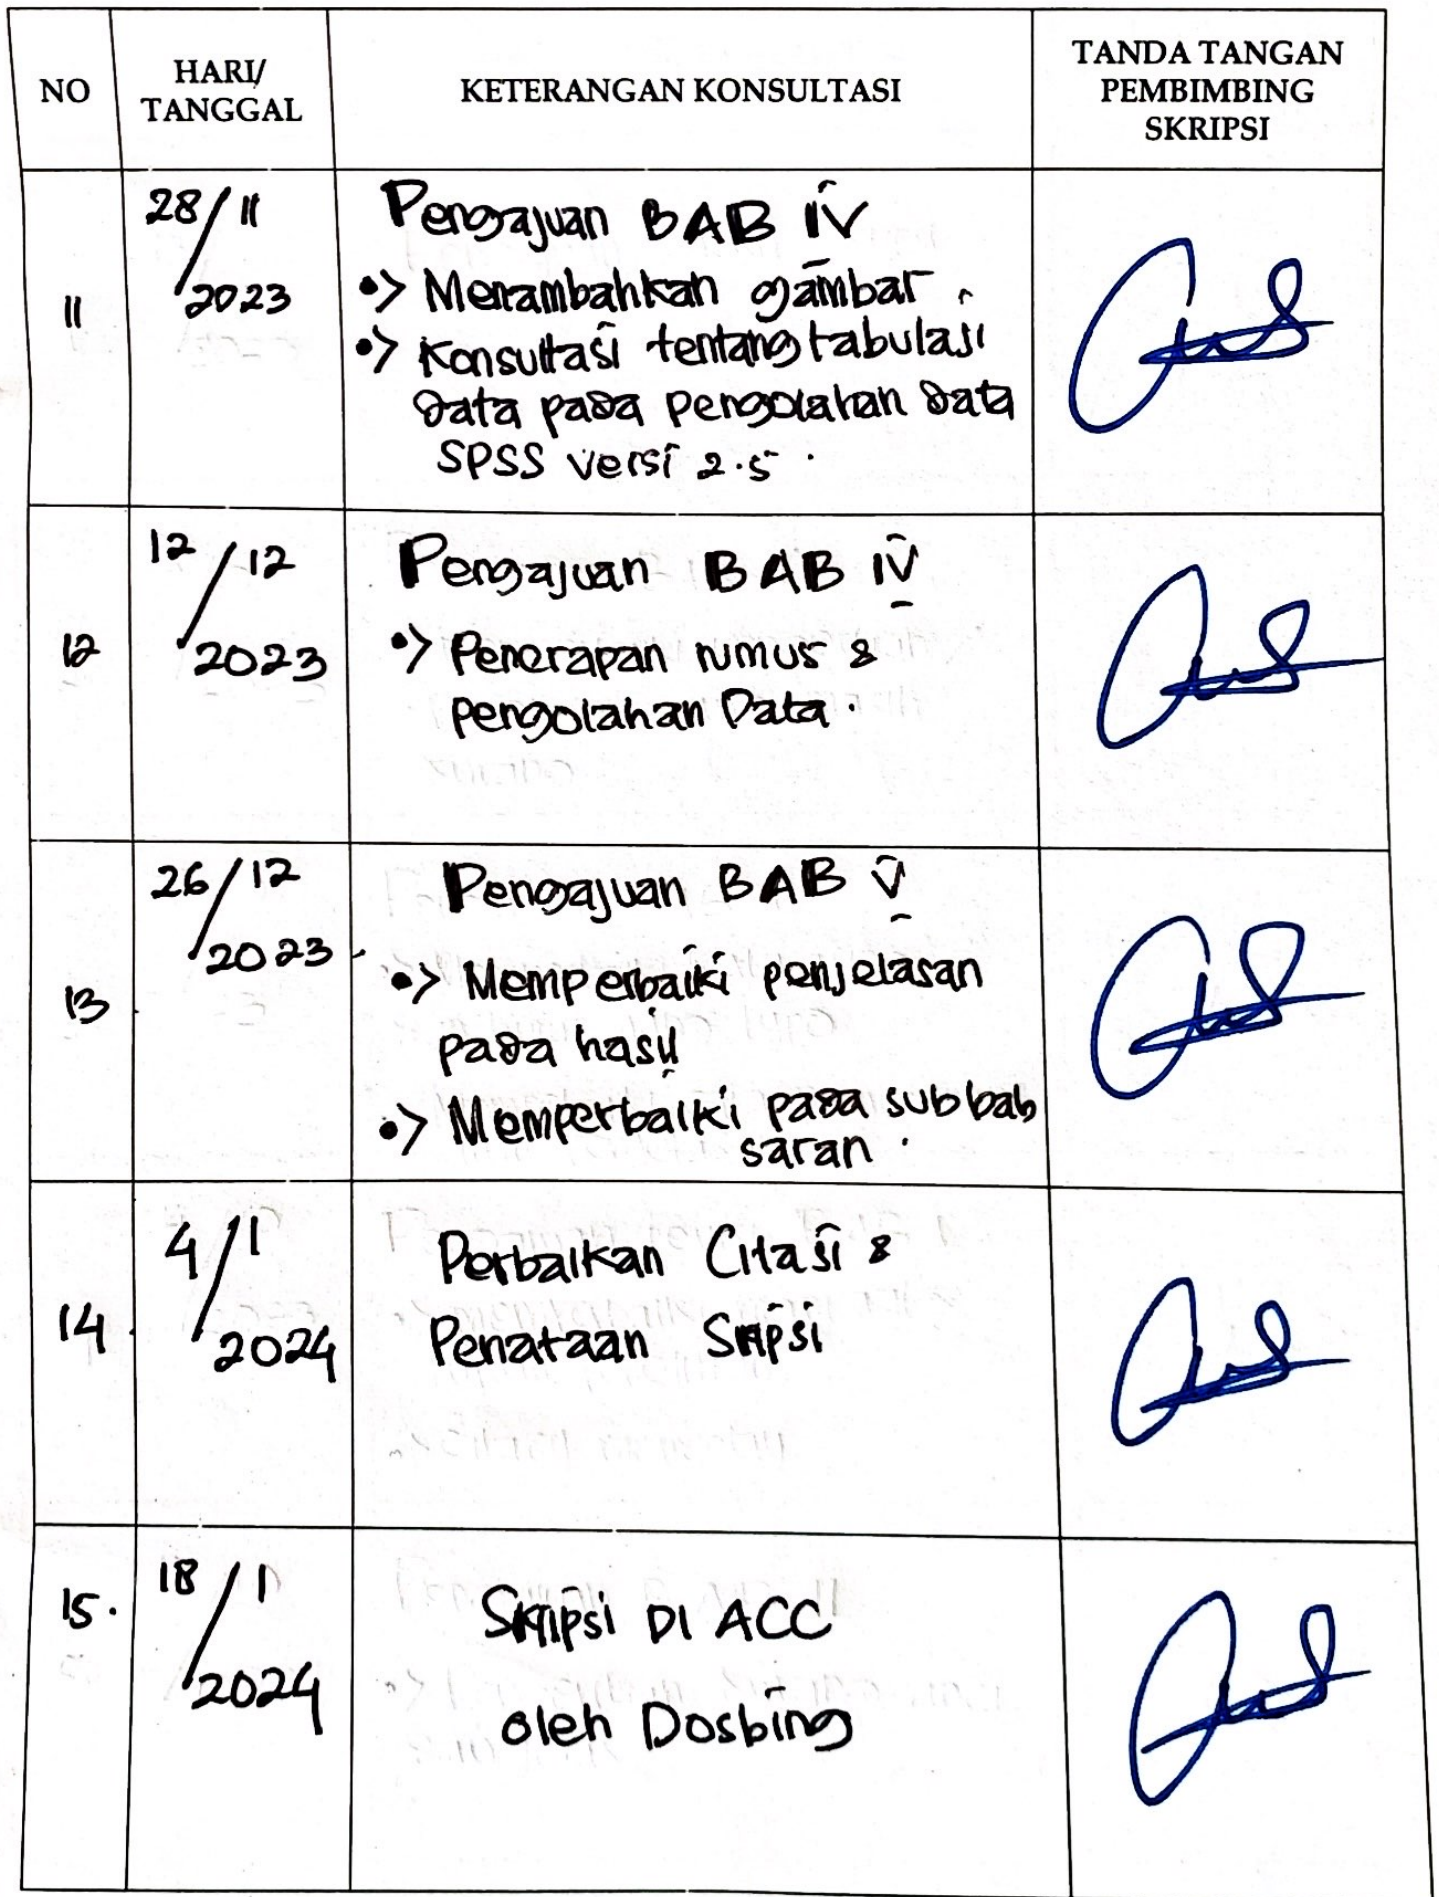 NO
HARI/
TANGGAL
KETERANGAN KONSULTASI
TANDA TANGAN
PEMBIMBING
SKRIPSI
11
28/11
2023
Pengajuan BAB IV
•> Menambahkan gambar.
•> Konsultasi tentang tabulasi
data pada pengolahan data
SPSS versi 2.5.
12
12/12
2023
Pengajuan BAB IV
•> Penerapan rumus &
pengolahan Data.
13
26/12
2023
Pengajuan BAB V
•> Memperbaiki penjelasan
pada hasil
•> Memperbaiki pada subbab
saran.
14
4/1
2024
Perbaikan Citasi &
Penataan Skripsi
15.
18/1
2024
Skripsi DI ACC
oleh Dosbing